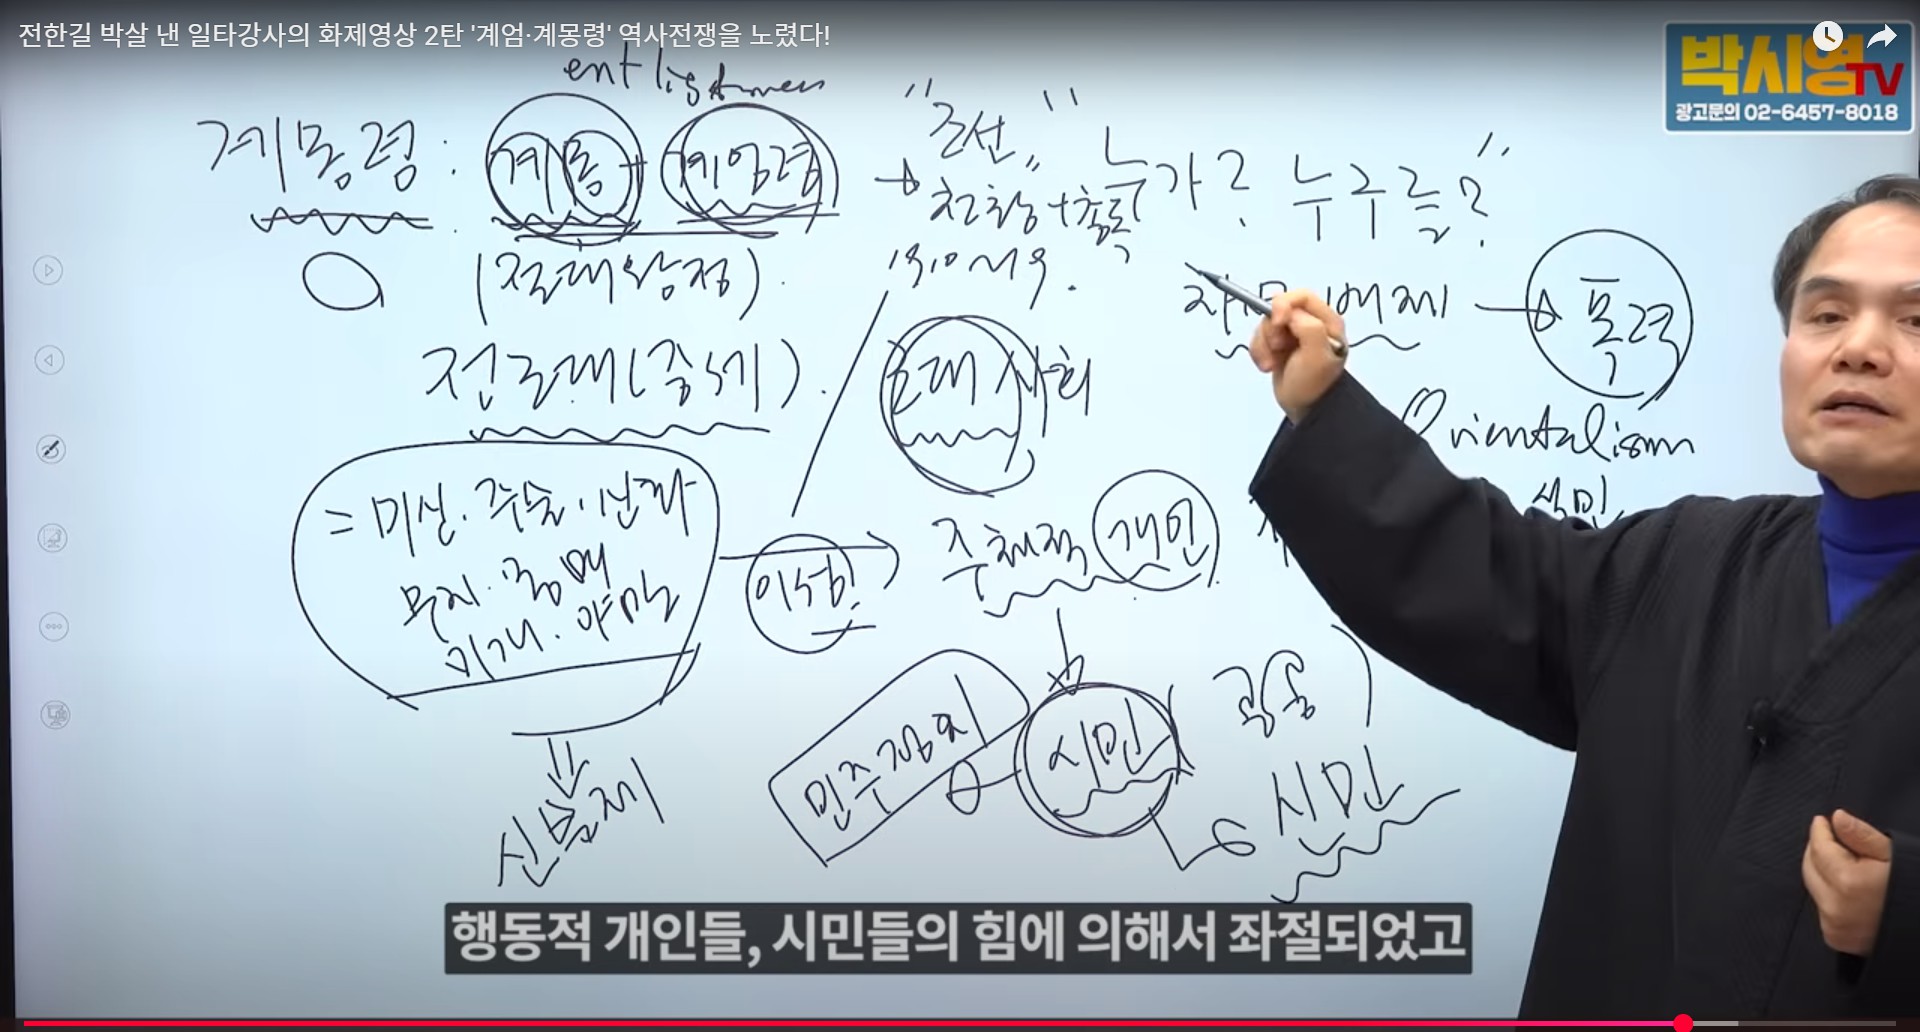 전한길 박살 낸 일타강사의 화제영상 2탄 '계엄·계몽령' 역사전쟁을 노렸다!
박시영TV
광고문의 02-6457-8018
계몽령 : 계몽 + 계엄령 → "조선" 누가? 누구를?"
(절대왕정).
→ 폭력
전근대(중세). 근대 사회
Orientalism
= 미신. 주술.
무지. 몽매
미개. 야만
이성! 주체적 개인
민주정치 시민
신분제 신민
행동적 개인들, 시민들의 힘에 의해서 좌절되었고